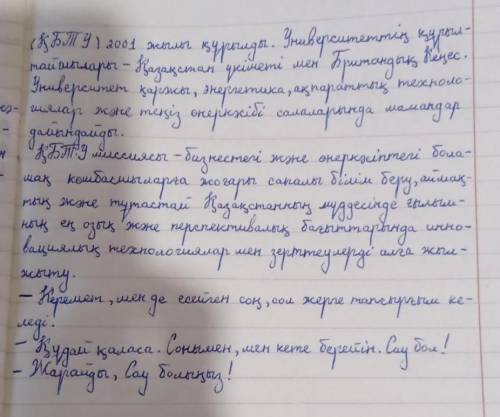 (ҚБТУ) 2001 жылы құрылды. Университеттің құрыл-
тайшылары – Қазақстан үкіметі мен Британдық Кеңес.
Университет қаржы, энергетика, ақпараттық техноло-
гиялар және теңіз өнеркәсібі салаларында мамандар
дайындайды.
ҚБТУ миссиясы – бизнестегі және өнеркәсіптегі бола-
шақ көшбасшыларға жоғары сапалы білім беру, аймақ-
тың және тұтастай Қазақстанның мүддесінде ғылым-
ның ең озық және перспективалық бағыттарында инно-
вациялық технологиялар мен зерттеулерді алға жыл-
жыту.
– Керемет, мен де есейген соң, сол жерге тапсырғым ке-
леді!
– Құдай қаласа. Сонымен, мен кете берейін. Сау бол!
– Жарайды, Сау болыңыз!